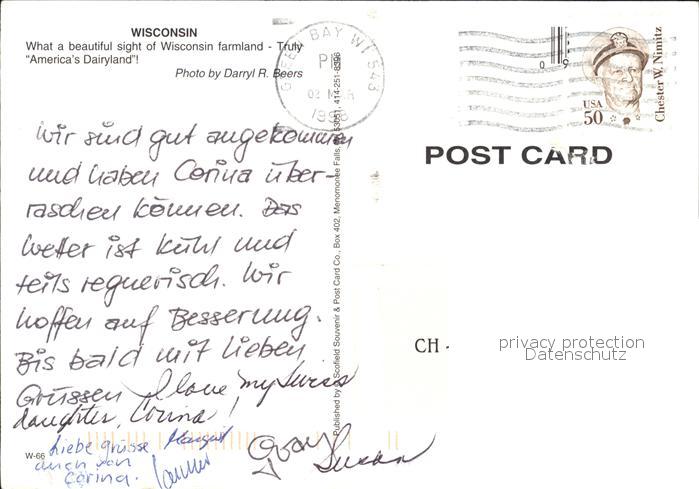 WISCONSIN
What a beautiful sight of Wisconsin farmland - Truly
"America's Dairyland"!
Photo by Darryl R. Beers
GREEN BAY WI 543
PM
USA
50
Chester W. Nimitz
POST CARD
Wir sind gut angekommen
und haben Corina über-
raschen können. Das
Wetter ist kühl und
teils regnerisch. Wir
hoffen auf Besserung.
Bis bald mit lieben
Grüssen I love my Swiss
daughter, Corina!
Liebe grüsse Margrit
auch von
Corina.
Susan
W-66
Published by Scofield Souvenir & Post Card Co., Box 402, Menomonee Falls, WI 53051, 414-251-8396
CH.
privacy protection
Datenschutz